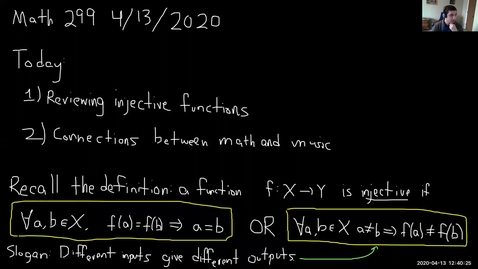 Math 299 4/13/2020
Today:
1) Reviewing injective functions
2) Connections between math and music
Recall the definition: a function f: X → Y is injective if
∀a,b ∈ X, f(a)=f(b) ⇒ a=b OR ∀a,b ∈ X a≠b ⇒ f(a)≠f(b)
Slogan: Different inputs give different outputs
2020-04-13 12:40:25